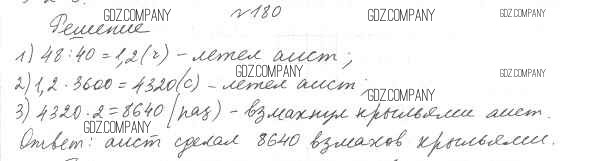 GDZ.COMPANY №180 GDZ.COMPANY GDZ.COMPANY
Решение
1) 48:40=1,2(ч) - летел аист;
GDZ.COMPANY
2) 1,2·3600=4320(с) - летел аист;
GDZ.COMPANY
3) 4320·2=8640(раз) - взмахнул крыльями аист.
GDZ.COMPANY
Ответ: аист сделал 8640 взмахов крыльями.